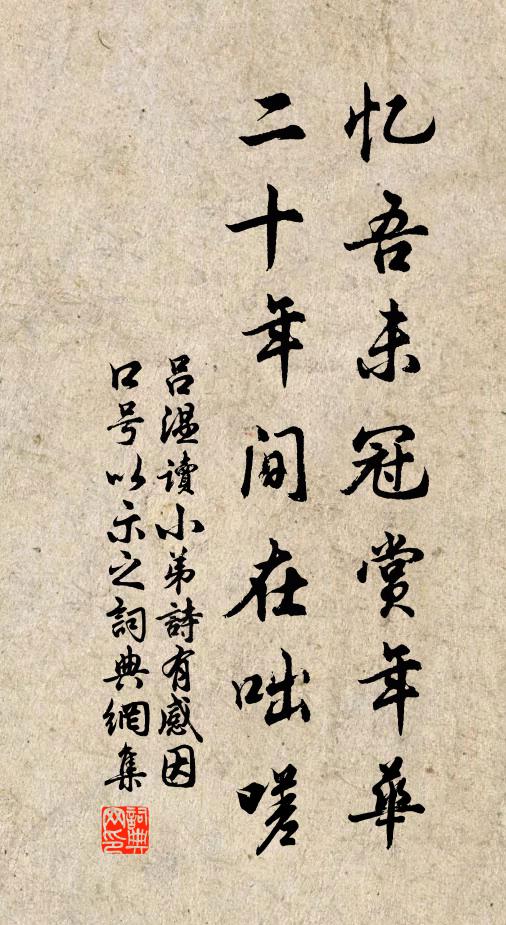 忆吾未冠赏年華
二十年间在咄嗟
吕温讀小弟詩有感因
口号以示之詞典網集
詞典
网印